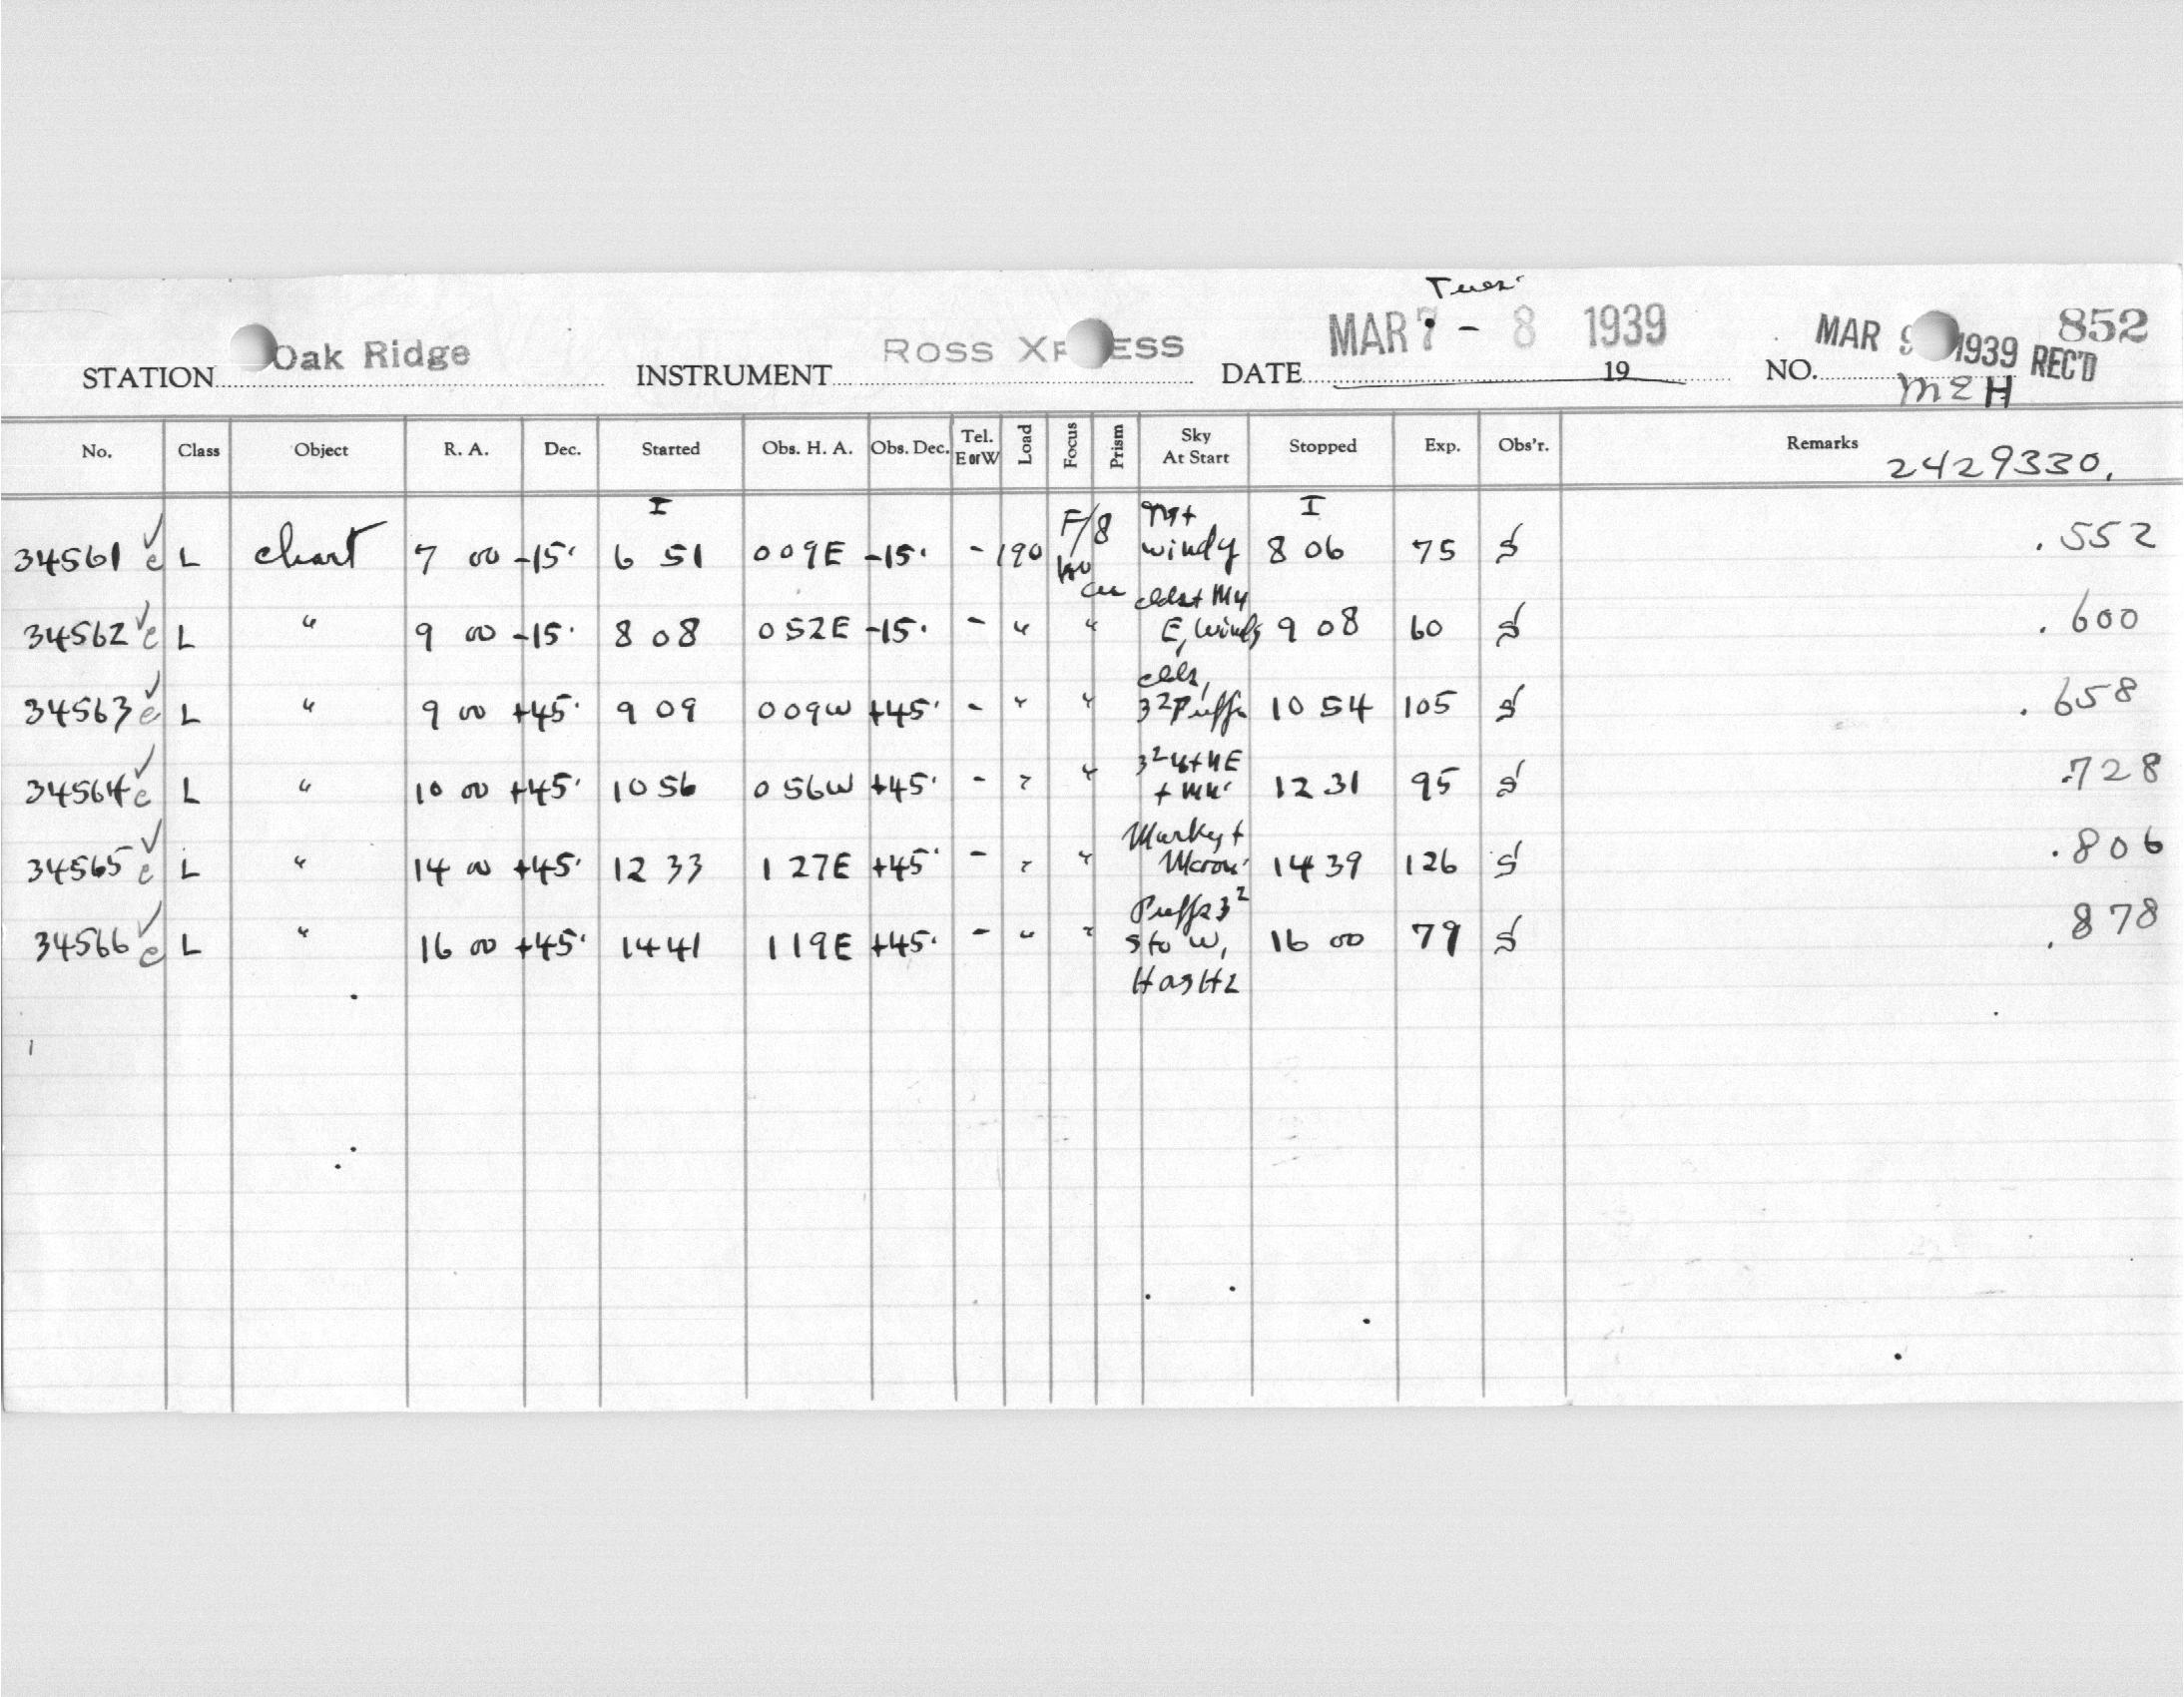 Tues.
STATION Oak Ridge INSTRUMENT ROSS XPRESS DATE MAR 7 - 8 1939 19 NO. MAR 9 1939 REC'D 852
MEH
No. Class Object R. A. Dec. Started Obs. H. A. Obs. Dec. Tel. E or W Load Focus Prism Sky At Start Stopped Exp. Obs'r. Remarks 2429330.
I I
34561 c L chart 7 00 -15· 6 51 0 09E -15· - 190 F/8 windy 8 06 75 S .552
34562 c L " 9 00 -15· 8 08 0 52E -15· - " " E, windy 9 08 60 S .600
34563 c L " 9 00 +45· 9 09 0 09W +45· - " " clds, 3² Puffs 10 54 105 S .658
34564 c L " 10 00 +45· 10 56 0 56W +45· - " " 12 31 95 S .728
34565 c L " 14 00 +45· 12 33 1 27E +45· - " " Murky + 14 39 126 S .806
34566 c L " 16 00 +45· 14 41 1 19E +45· - " " Puffs 3² S to W, 16 00 79 S .878